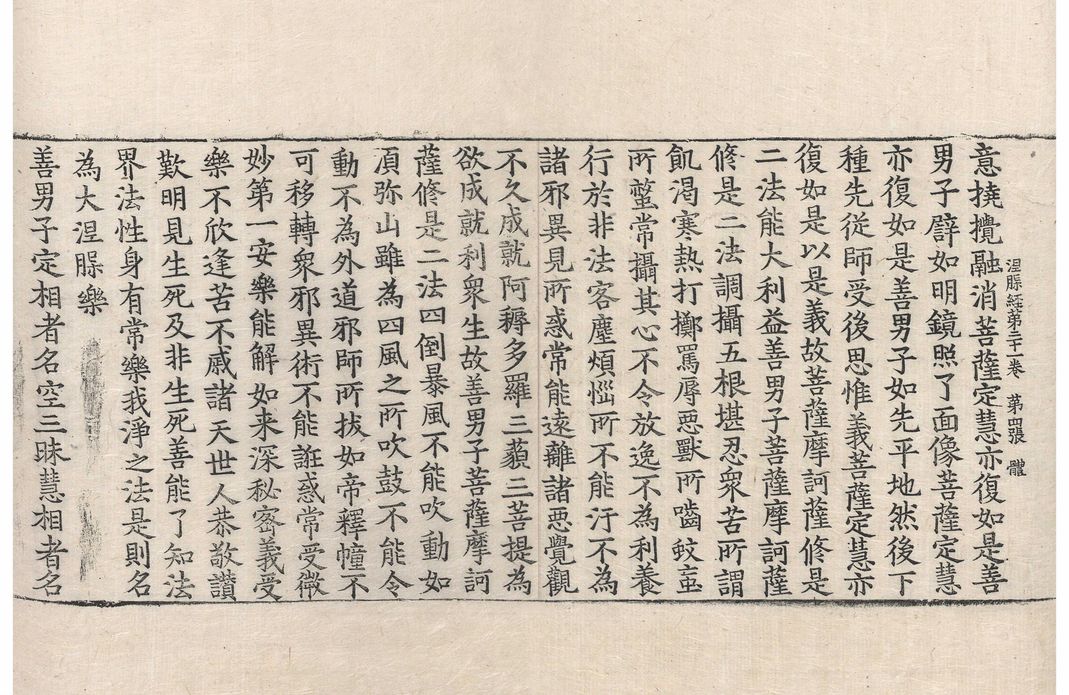 涅槃經第三十一卷　第四張　體
意撓攪融消菩薩定慧亦復如是善
男子譬如明鏡照了面像菩薩定慧
亦復如是善男子如先平地然後下
種先從師受後思惟義菩薩定慧亦
復如是以是義故菩薩摩訶薩修是
二法能大利益善男子菩薩摩訶薩
修是二法調攝五根堪忍衆苦所謂
飢渴寒熱打擲罵辱惡獸所嚙蚊䖟
所螫常攝其心不令放逸不為利養
行於非法客塵煩惱所不能汙不為
諸邪異見所惑常能遠離諸惡覺觀
不久成就阿耨多羅三藐三菩提為
欲成就利衆生故善男子菩薩摩訶
薩修是二法四倒暴風不能吹動如
湏弥山雖為四風之所吹鼓不能令
動不為外道邪師所拔如帝釋幢不
可移轉衆邪異術不能誑惑常受微
妙第一安樂能解如来深秘宻義受
樂不欣逢苦不慼諸天世人恭敬讃
歎明見生死及非生死善能了知法
界法性身有常樂我淨之法是則名
為大涅槃樂
善男子定相者名空三昧慧相者名